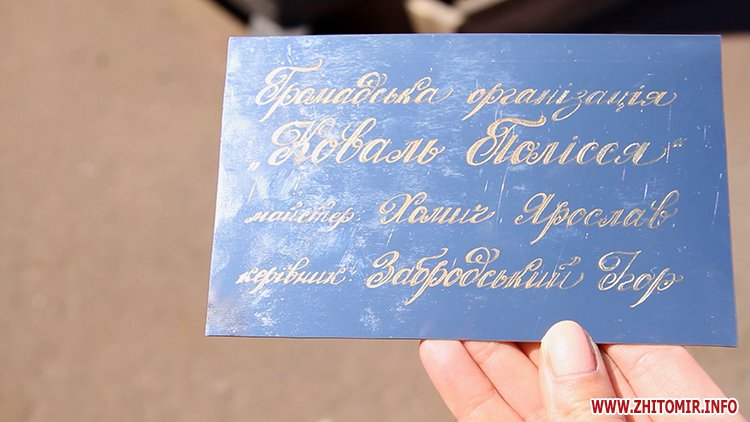 Громадська організація
„Коваль Полісся“
майстер: Холич Ярослав.
керівник: Забродський Ігор
WWW.ZHITOMIR.INFO